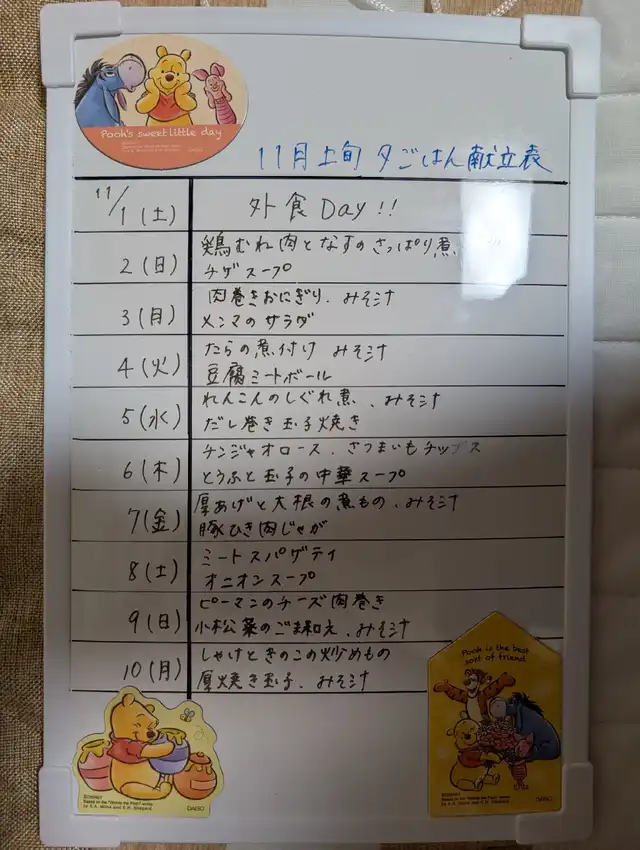 Pooh's sweet little day
11月上旬 夕ごはん献立表
11/1(土) 外食Day!!
2(日) 鶏むね肉となすのさっぱり煮、
チゲスープ
3(月) 肉巻きおにぎり、みそ汁
メンマのサラダ
4(火) たらの煮付け みそ汁
豆腐ミートボール
5(水) れんこんのしぐれ煮、みそ汁
だし巻き玉子焼き
6(木) チンジャオロース、さつまいもチップス
とうふと玉子の中華スープ
7(金) 厚あげと大根の煮もの、みそ汁
豚ひき肉じゃが
8(土) ミートスパゲティ
オニオンスープ
9(日) ピーマンのチーズ肉巻き
小松菜のごま和え、みそ汁
10(月) しゃけときのこの炒めもの
厚焼き玉子、みそ汁
Pooh is the best
sort of friend
Based on the "Winnie the Pooh" works
by A.A. Milne and E.H. Shepard.
DAISO
Based on the "Winnie the Pooh" works
by A.A. Milne and E.H. Shepard.
DAISO